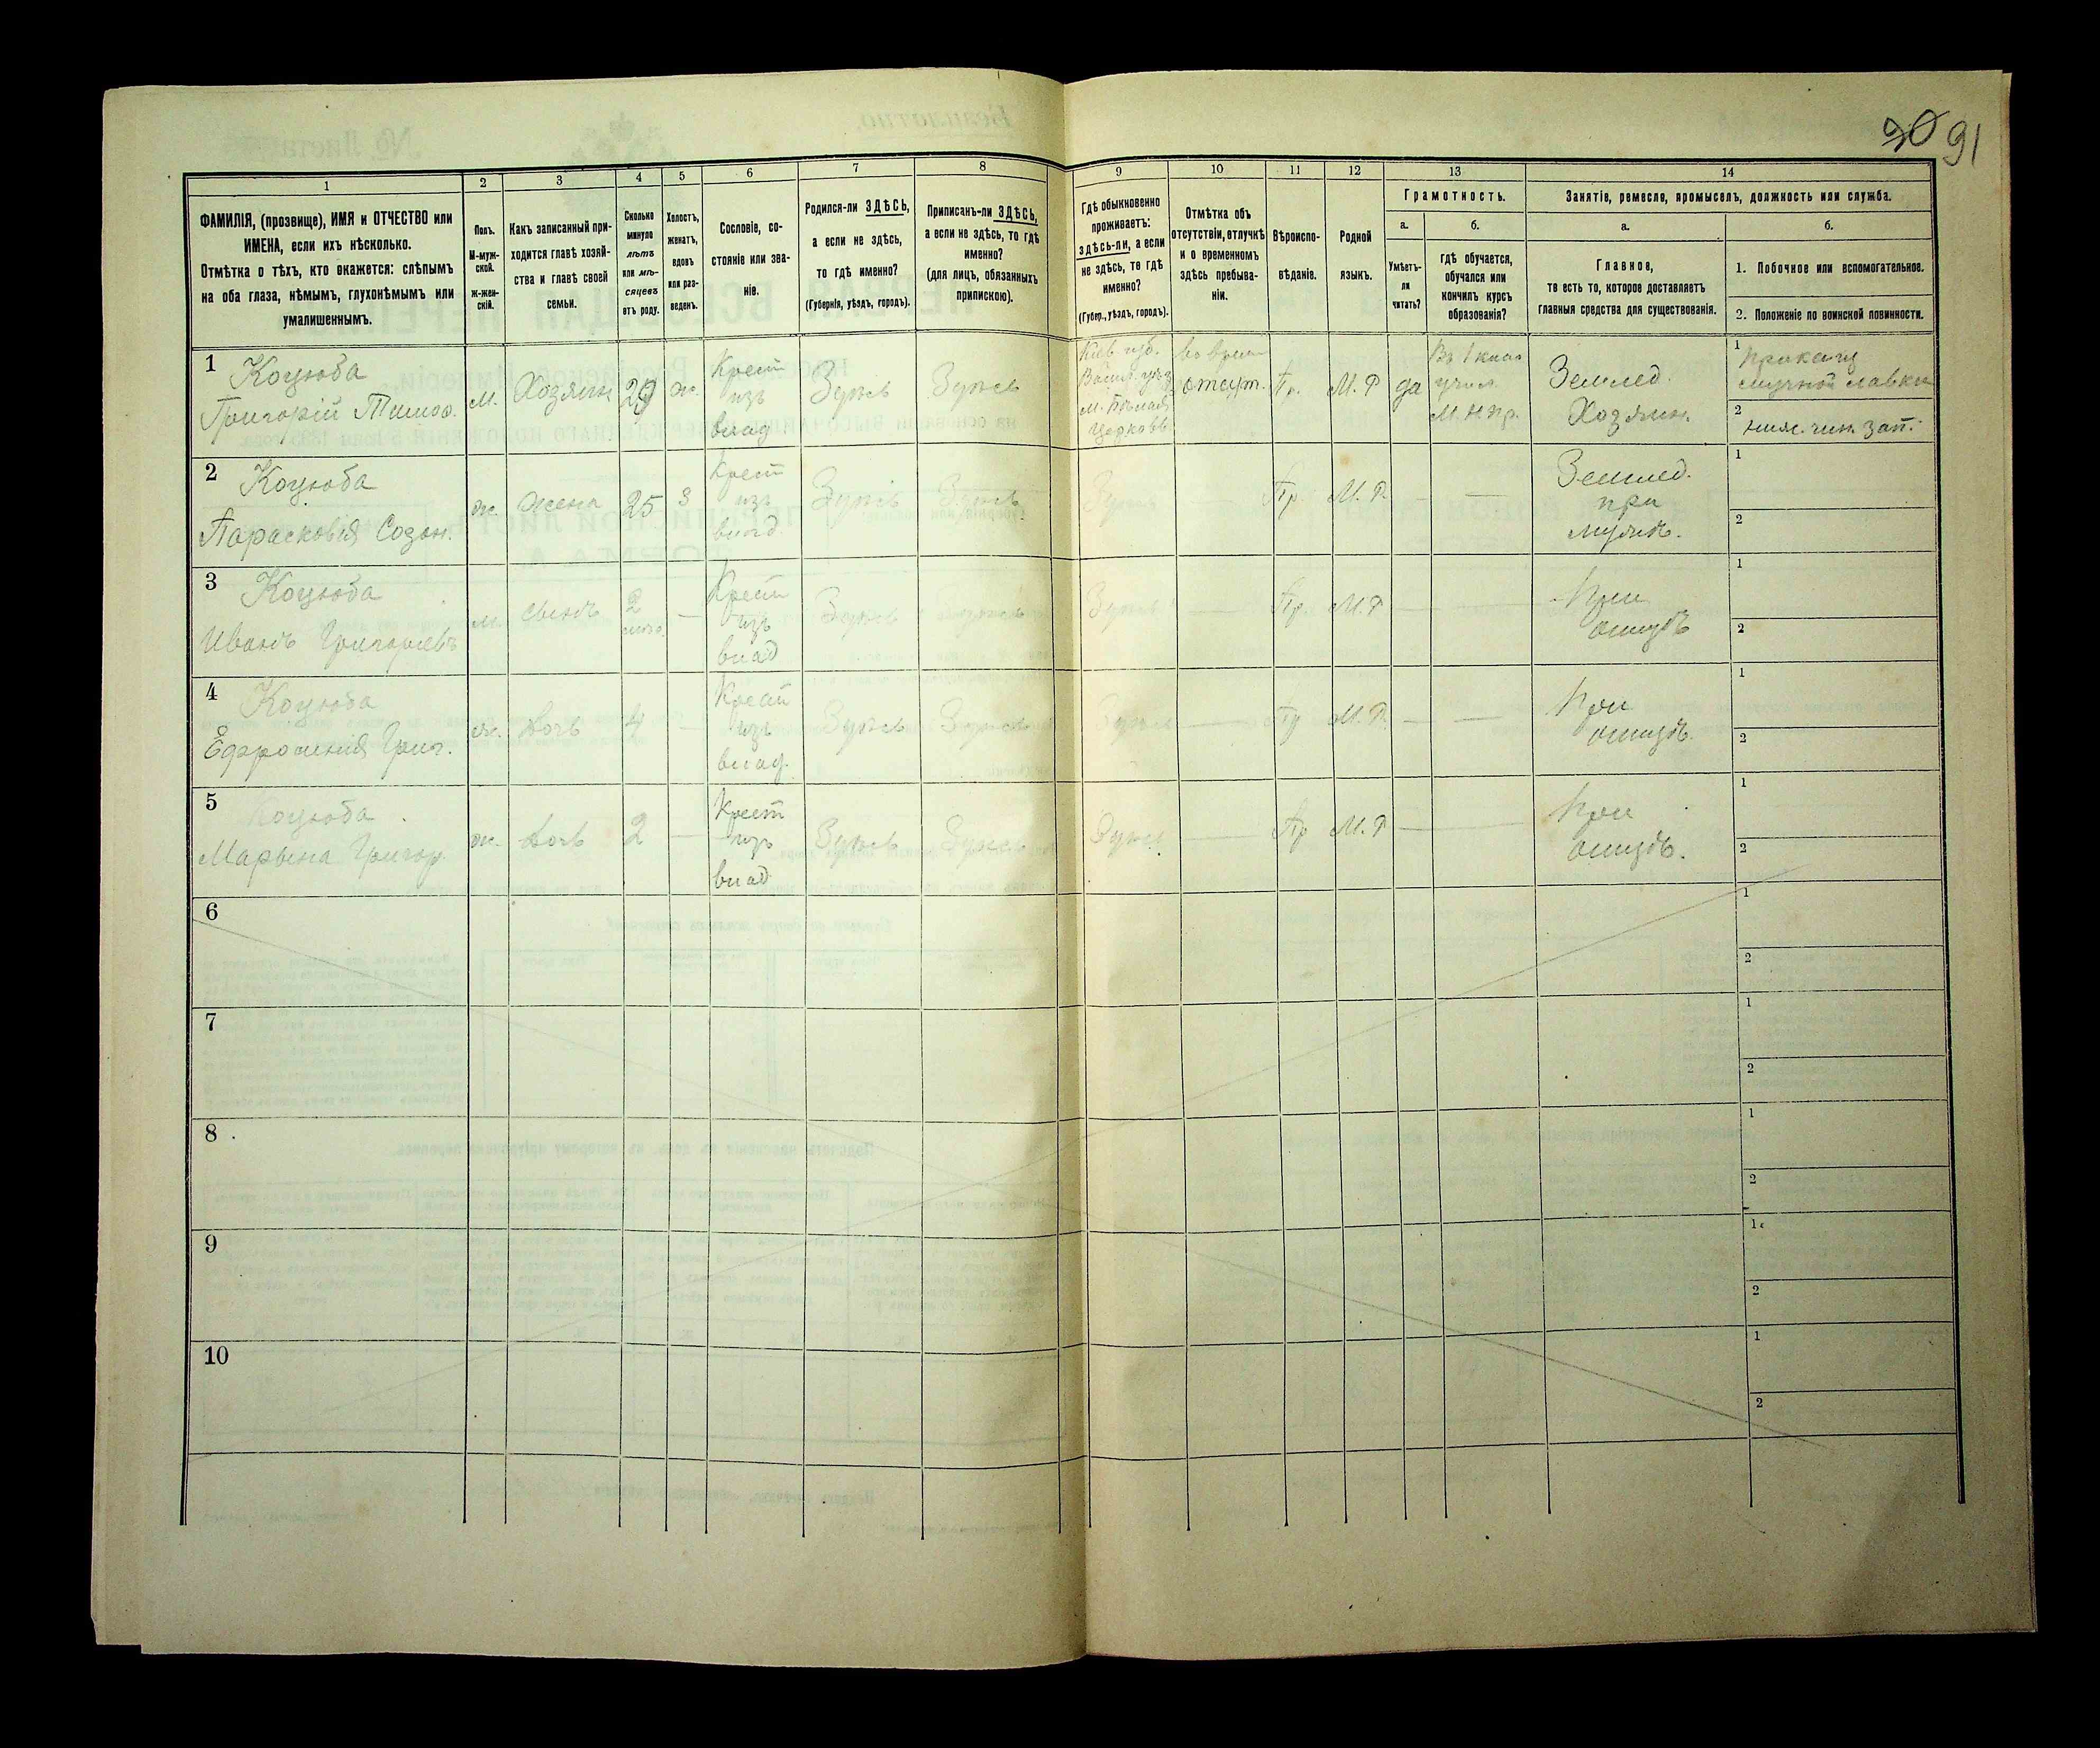 90 91
1
2
3
4
5
6
7
8
9
10
11
12
13
14
ФАМИЛІЯ, (прозвище), ИМЯ и ОТЧЕСТВО или
ИМЕНА, если ихъ нѣсколько.
Отмѣтка о тѣхъ, кто окажется: слѣпымъ
на оба глаза, нѣмымъ, глухонѣмымъ или
умалишеннымъ.
Полъ.
М-муж-
ской.
Ж-жен-
скій.
Какъ записанный при-
ходится главѣ хозяй-
ства и главѣ своей
семьи.
Сколько
минуло
лѣтъ
или мѣ-
сяцевъ
отъ роду.
Холостъ,
женатъ,
вдовъ
или раз-
веденъ.
Сословіе, со-
стояніе или зва-
ніе.
Родился-ли ЗДѢСЬ,
а если не здѣсь,
то гдѣ именно?
(Губернія, уѣздъ, городъ).
Приписанъ-ли ЗДѢСЬ,
а если не здѣсь, то гдѣ
именно?
(для лицъ, обязанныхъ
припискою).
Гдѣ обыкновенно
проживаетъ:
здѣсь-ли, а если
не здѣсь, то гдѣ
именно?
(Губер., уѣздъ, городъ).
Отмѣтка объ
отсутствіи, отлучкѣ
и о временномъ
здѣсь пребыва-
ніи.
Вѣроиспо-
вѣданіе.
Родной
языкъ.
Грамотность.
а.
Умѣетъ-
ли
читать?
б.
гдѣ обучается,
обучался или
кончилъ курсъ
образованія?
Занятіе, ремесло, промыселъ, должность или служба.
а.
Главное,
то есть то, которое доставляетъ
главныя средства для существованія.
б.
1. Побочное или вспомогательное.
2. Положеніе по воинской повинности.
1 Коцюба
Григорій Тимоф.
м.
Хозяин
29
ж.
Крест
изъ
влад
Здѣсь
Здѣсь
Кіев губ.
Церковь
отлуч.
Пр.
М. Р
да
М. Н. Пр.
Землед.
Хозяин.
1
мучной лавки
2
ниж. чин. зап.
2 Коцюба
Парасковія Созон.
ж.
жена
25
З
Крест
изъ
влад.
Здѣсь
Здѣсь
Здѣсь
Пр.
М. Р.
Землед.
при
мужѣ.
1
2
3 Коцюба
Иванъ Григоріевъ
м.
сынъ
2
Крест
изъ
влад
Здѣсь
Здѣсь
Здѣсь
Пр.
М. Р
При
отцѣ
1
2
4 Коцюба
Ефросинія Григ.
ж.
дочь
4
Крест
изъ
влад.
Здѣсь
Здѣсь
Здѣсь
Пр
М. Р.
При
отцѣ.
1
2
5 Коцюба
Марьина Григор.
ж.
дочь
2
Крест
изъ
влад
Здѣсь
Здѣсь
Здѣсь
Пр
М. Р
При
отцѣ.
1
2
6
1
2
7
1
2
8
1
2
9
1
2
10
1
2